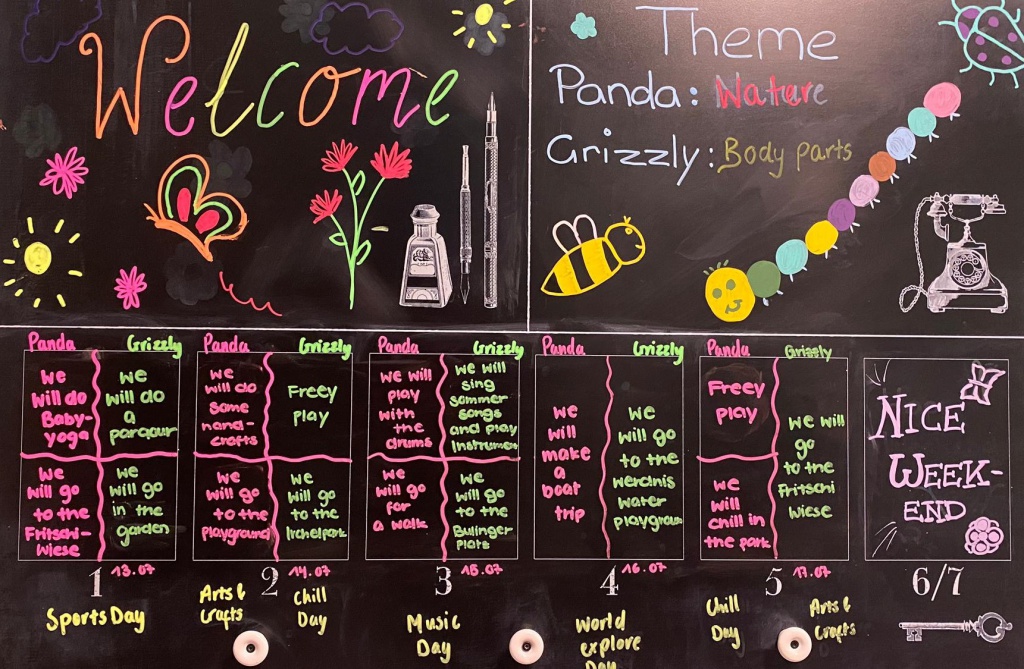 Welcome
Theme
Panda: Nature
Grizzly: Body parts
Panda
Grizzly
we
will do
Baby-
yoga
we
will do
a
parcour
we
will go
to the
Fritschi-
wiese
we
will go
in the
garden
1
13.07
Sports Day
Panda
Grizzly
we
will do
some
hand-
crafts
Freey
play
we
will go
to the
playground
we
will go
to the
Irchelpark
2
14.07
Arts &
Crafts
Chill
Day
Panda
Grizzly
we will
play
with
the
drums
we will
sing
sommer
songs
and play
Instrumen
we
will go
for
a walk
we
will go
to the
Bullinger
Platz
3
15.07
Music
Day
Panda
Grizzly
we
will
make
a
boat
trip
we
will go
to the
Werdinis
water
playgroun
4
16.07
World
explore
Day
Panda
Grizzly
Freey
play
we
will
chill in
the park
we will
go
to the
Fritschi
wiese
5
17.07
Chill
Day
Arts &
Crafts
NICE
WEEK-
END
6/7